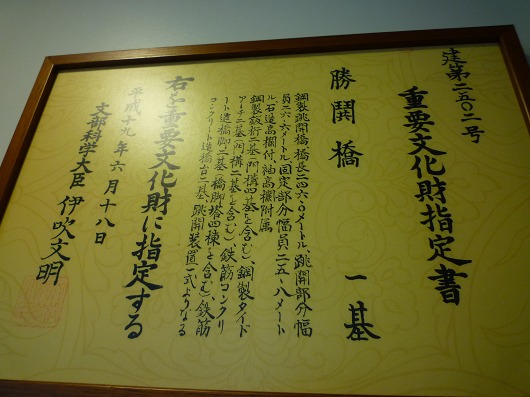 建第二五〇二号
重要文化財指定書
勝鬨橋 一基
鋼製跳開橋、橋長二四六・〇メートル、跳開部分幅
員二六・六メートル、固定部分幅員二五・八メート
ル、石造高欄付、袖高欄附属
鋼製鈑桁二基（門構四基を含む）、鋼製タイド
アーチ二基（門構二基を含む）、鉄筋コンクリ
ート造橋脚二基（橋脚塔四棟を含む）、鉄筋
コンクリート造橋台二基、跳開装置一式よりなる
右を重要文化財に指定する
平成十九年六月十八日
文部科学大臣 伊吹文明